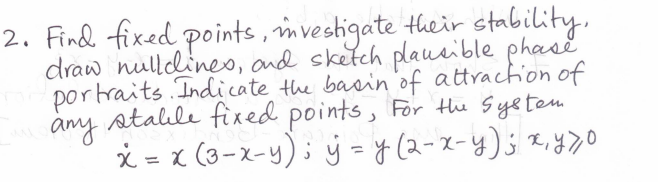 2. Find fixed points, investigate their stability,
draw nullclines, and sketch plausible phase
portraits. Indicate the basin of attraction of
any stable fixed points, For the System
ẋ = x (3-x-y) ; y = y (2-x-y) ; x, y ⩾ 0